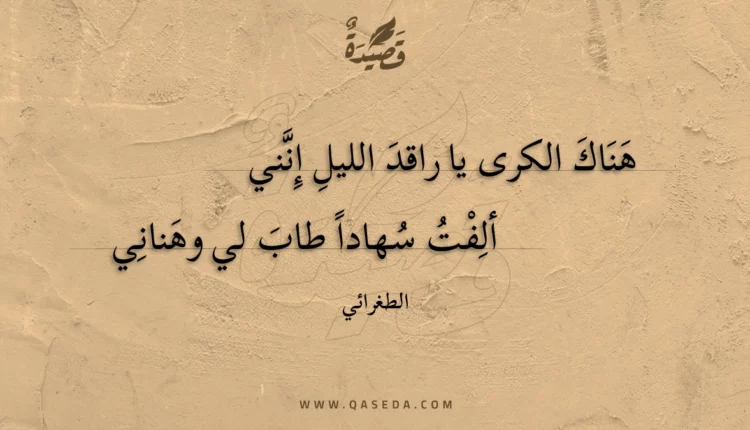 قَصِيْدَةٌ
هَنَاكَ الكرى يا راقدَ الليلِ إِنَّني
ألِفْتُ سُهاداً طابَ لي وهَنانِي
الطغرائي
WWW.QASEDA.COM